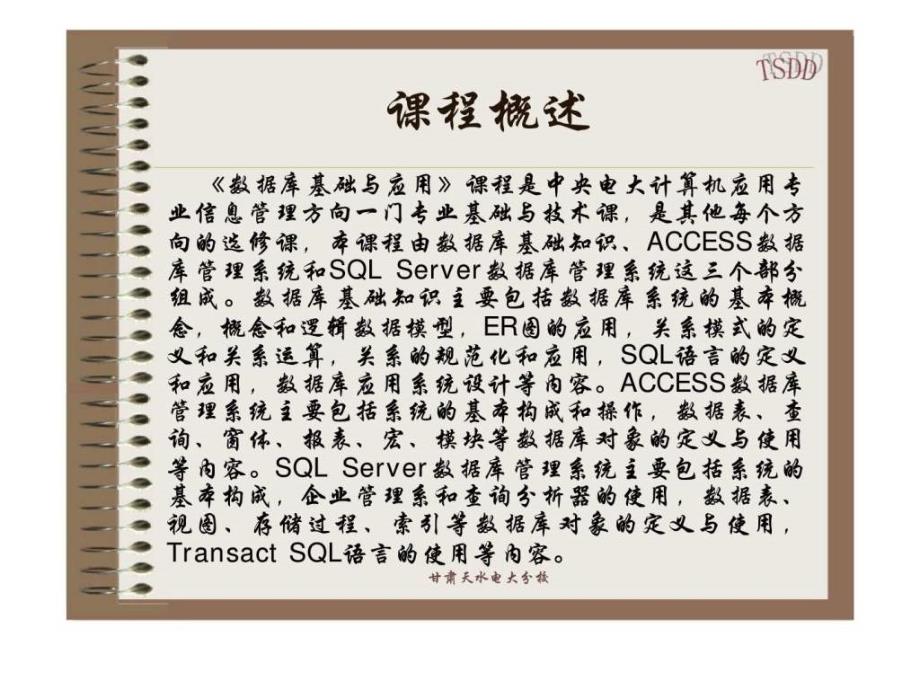 TSDD
课程概述
《数据库基础与应用》课程是中央电大计算机应用专
业信息管理方向一门专业基础与技术课，是其他每个方
向的选修课，本课程由数据库基础知识、ACCESS数据
库管理系统和SQL Server数据库管理系统这三个部分
组成。数据库基础知识主要包括数据库系统的基本概
念，概念和逻辑数据模型，ER图的应用，关系模式的定
义和关系运算，关系的规范化和应用，SQL语言的定义
和应用，数据库应用系统设计等内容。ACCESS数据库
管理系统主要包括系统的基本构成和操作，数据表、查
询、窗体、报表、宏、模块等数据库对象的定义与使用
等内容。SQL Server数据库管理系统主要包括系统的
基本构成，企业管理系和查询分析器的使用，数据表、
视图、存储过程、索引等数据库对象的定义与使用，
Transact SQL语言的使用等内容。
甘肃天水电大分校